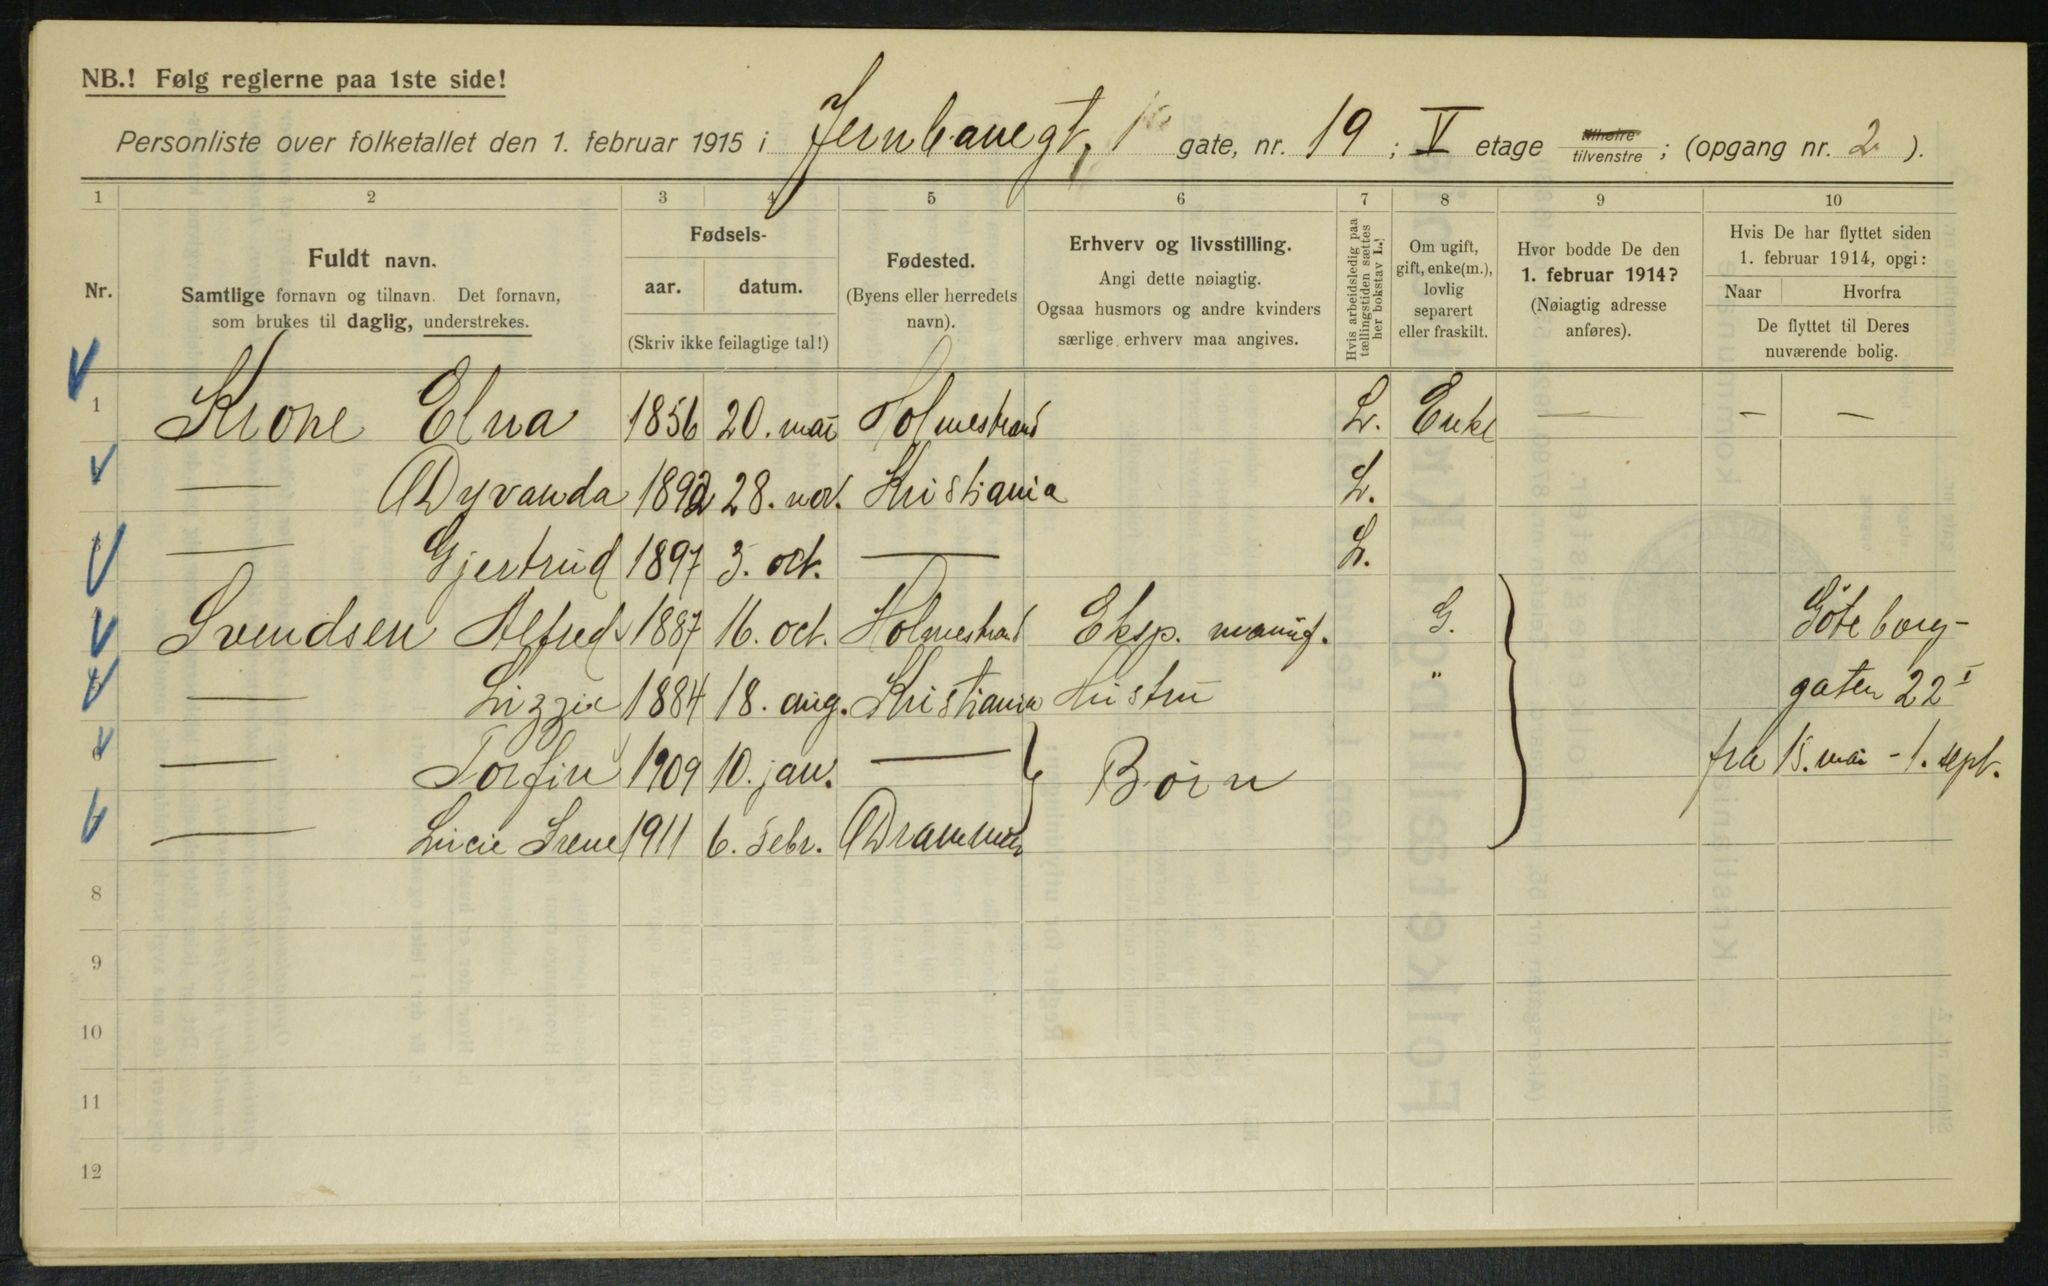 NB.! Følg reglerne paa 1ste side!
Personliste over folketallet den 1. februar 1915 i Jernbanegt. gate, nr. 19 ; V etage tilhøire tilvenstre ; (opgang nr. 2 ).
1 2 3 4 5 6 7 8 9 10
Nr.
Fuldt navn.
Samtlige fornavn og tilnavn. Det fornavn,
som brukes til daglig, understrekes.
Fødsels-
aar. datum.
(Skriv ikke feilagtige tal!)
Fødested.
(Byens eller herredets
navn).
Erhverv og livsstilling.
Angi dette nøiagtig.
Ogsaa husmors og andre kvinders
særlige erhverv maa angives.
Hvis arbeidsledig paa
tællingstiden sættes
her bokstav L.!
Om ugift,
gift, enke(m.),
lovlig
separert
eller fraskilt.
Hvor bodde De den
1. februar 1914?
(Nøiagtig adresse
anføres).
Hvis De har flyttet siden
1. februar 1914, opgi:
Naar Hvorfra
De flyttet til Deres
nuværende bolig.
1 Krone Elna 1856 20. mai Holmestrand L. Enke — — —
— Dyvanda 1892 28. nov. Kristiania L.
— Gjertrud 1897 3. oct. — L.
Svendsen Alfred 1887 16. oct. Holmestrand Eksp. manuf. G. Göteborg-
— Lizzie 1884 18. aug. Kristiania Hustru " gaten 22 I
— Torfin 1909 10. jan. — Børn fra 15. mai - 1. sept.
— Lucie Irene 1911 6. febr. Drammen
8
9
10
11
12